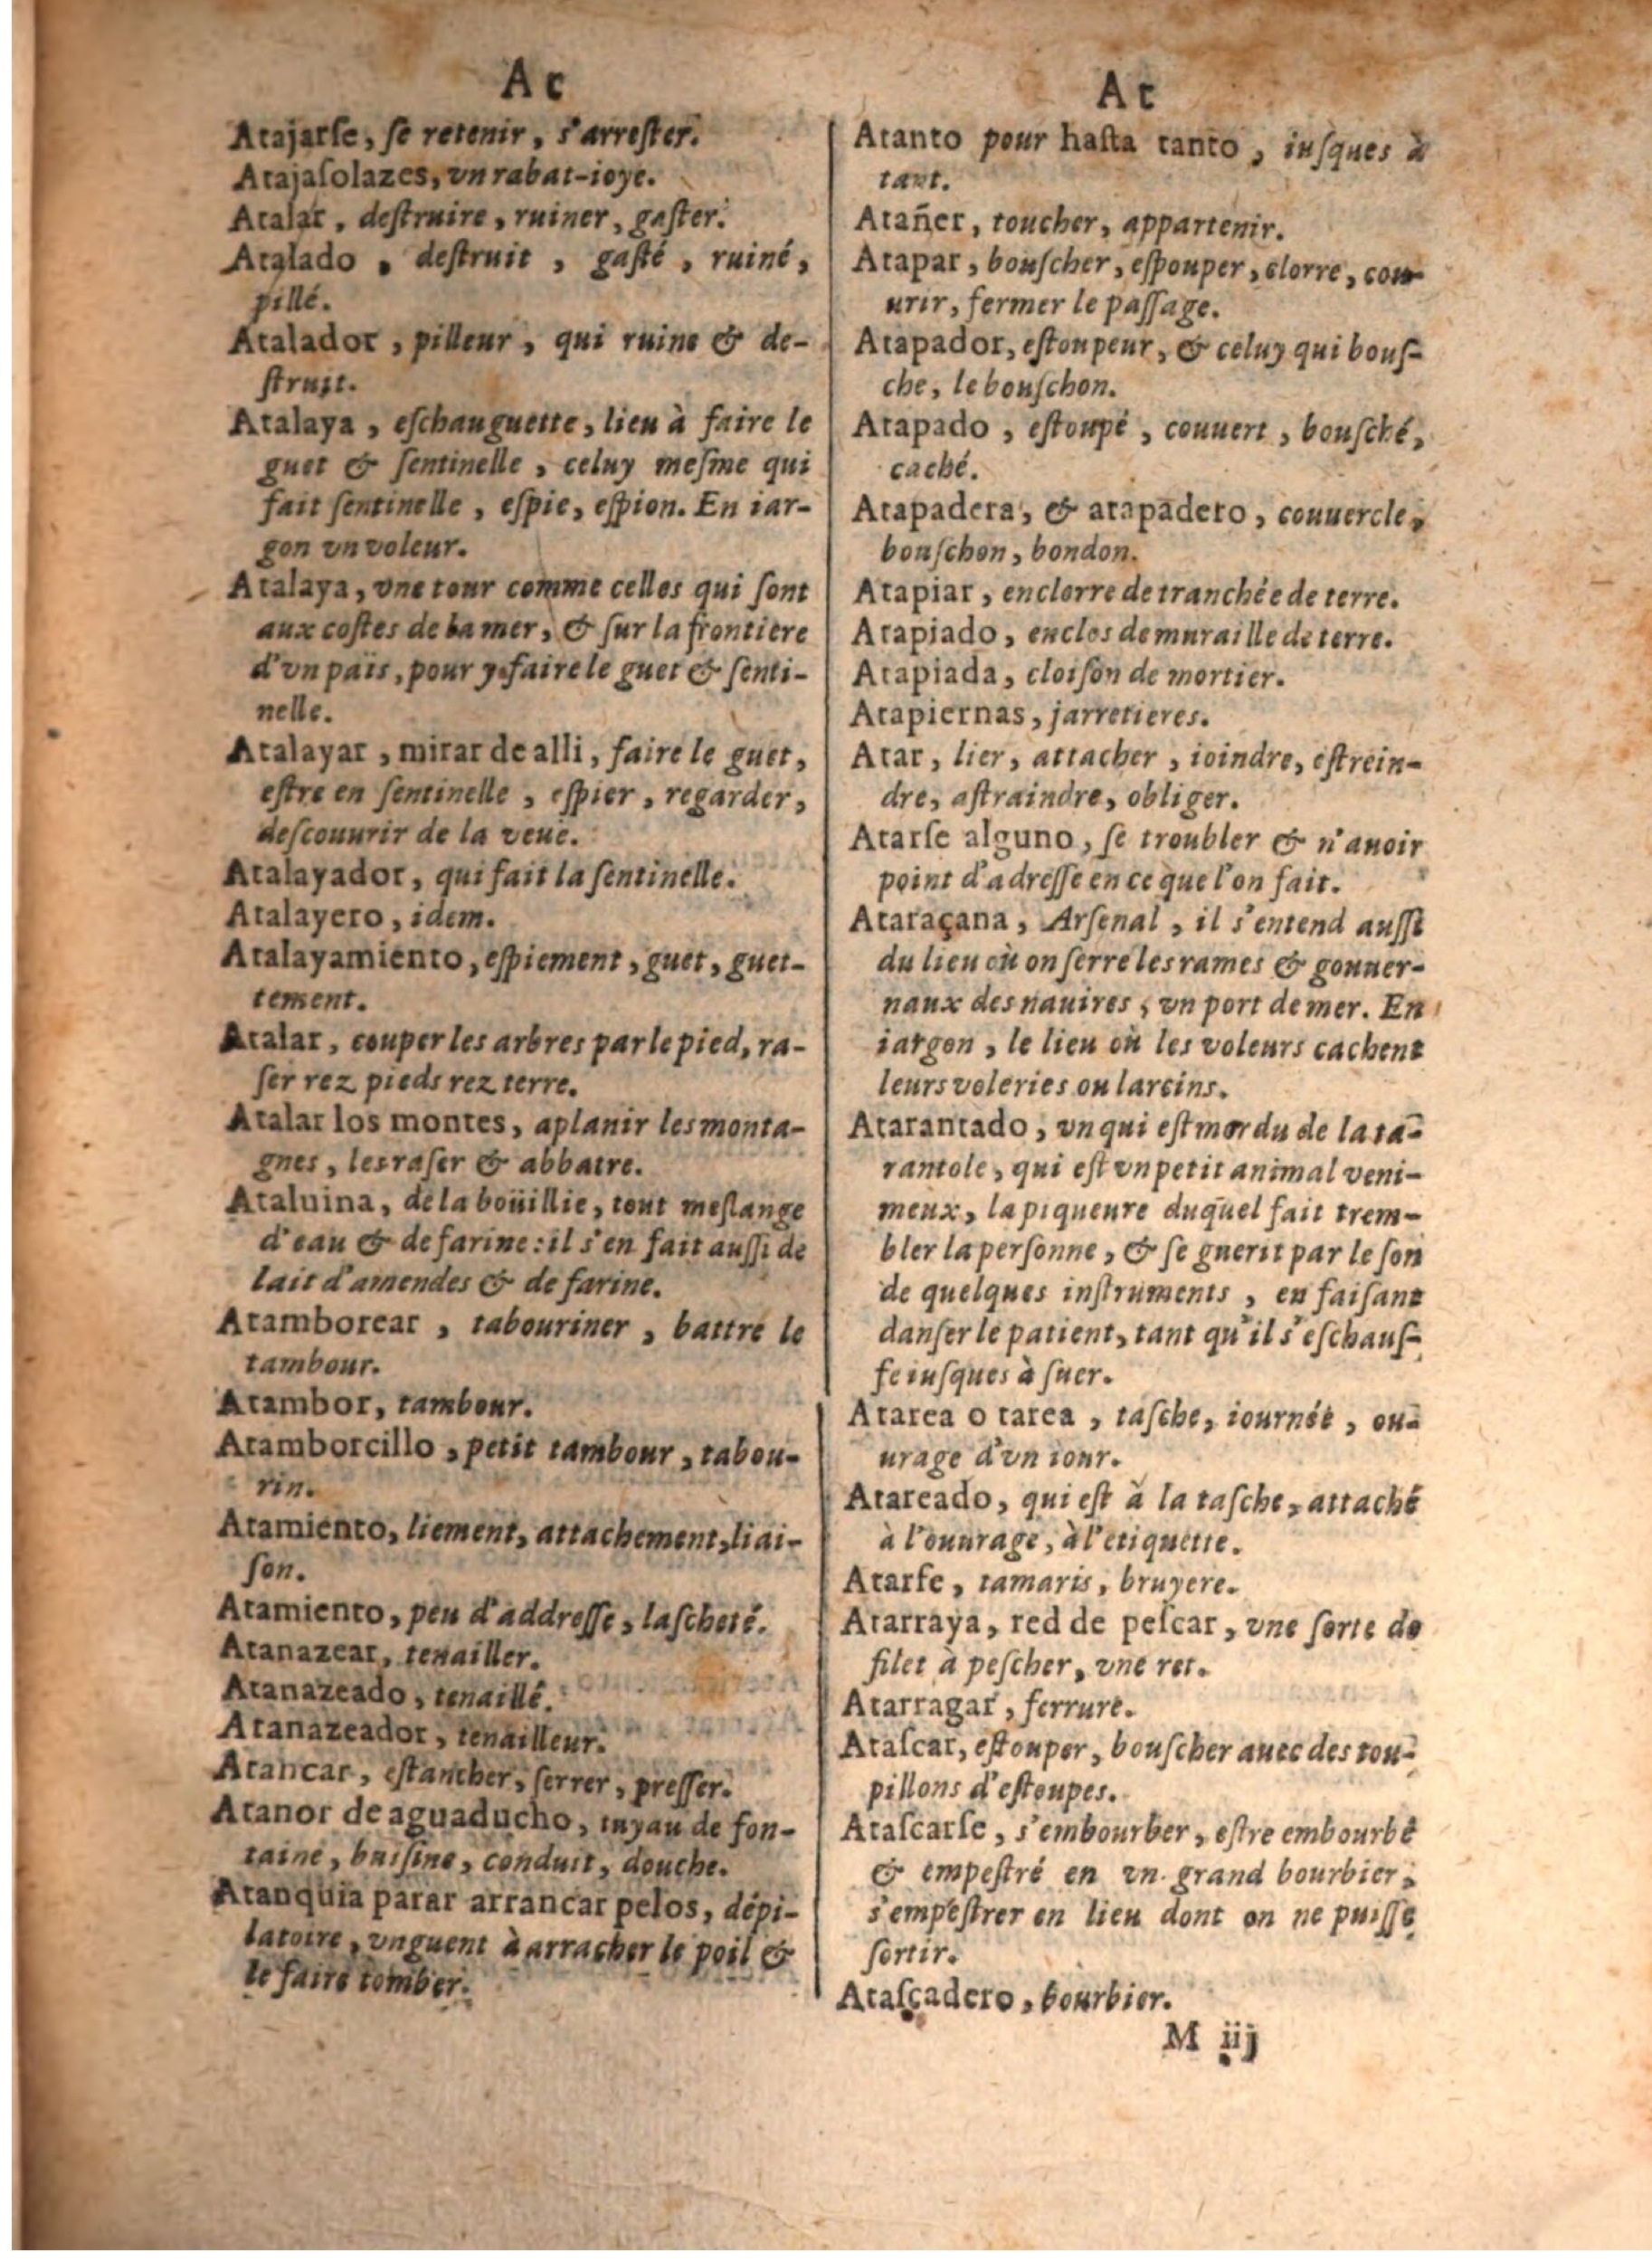 At
Atajarſe, ſe retenir, s'arreſter.
Atajaſolazes, vn rabat-ioye.
Atalar, deſtruire, ruiner, gaſter.
Atalado, deſtruit, gaſté, ruiné,
pillé.
Atalador, pilleur, qui ruine & de-
ſtruit.
Atalaya, eſchauguette, lieu à faire le
guet & ſentinelle, celuy meſme qui
fait ſentinelle, eſpie, eſpion. En iar-
gon vn voleur.
Atalaya, vne tour comme celles qui ſont
aux coſtes de la mer, & ſur la frontiere
d'vn païs, pour y faire le guet & ſenti-
nelle.
Atalayar, mirar de alli, faire le guet,
eſtre en ſentinelle, eſpier, regarder,
deſcouurir de la veuë.
Atalayador, qui fait la ſentinelle.
Atalayero, idem.
Atalayamiento, eſpiement, guet, guet-
tement.
Atalar, couper les arbres par le pied, ra-
ſer rez pieds rez terre.
Atalar los montes, aplanir les monta-
gnes, les raſer & abbatre.
Ataluina, de la boüillie, tout meſlange
d'eau & de farine: il s'en fait auſſi de
lait d'amendes & de farine.
Atamborear, tabouriner, battre le
tambour.
Atambor, tambour.
Atamborcillo, petit tambour, tabou-
rin.
Atamiento, liement, attachement, liai-
ſon.
Atamiento, peu d'addreſſe, laſcheté.
Atanazear, tenailler.
Atanazeado, tenaillé.
Atanazeador, tenailleur.
Atancar, eſtancher, ſerrer, preſſer.
Atanor de aguaducho, tuyau de fon-
taine, buiſine, conduit, douche.
Atanquia parar arrancar pelos, dépi-
latoire, vnguent à arracher le poil &
le faire tomber.
At
Atanto pour haſta tanto, iuſques à
tant.
Atañer, toucher, appartenir.
Atapar, bouſcher, eſpouper, clorre, cou-
urir, fermer le paſſage.
Atapador, eſtoupeur, & celuy qui bouſ-
che, le bouſchon.
Atapado, eſtoupé, couuert, bouſché,
caché.
Atapadera, & atapadero, couuercle,
bouſchon, bondon.
Atapiar, enclorre de tranchée de terre.
Atapiado, enclos de muraille de terre.
Atapiada, cloiſon de mortier.
Atapiernas, jarretieres.
Atar, lier, attacher, ioindre, eſtrein-
dre, aſtraindre, obliger.
Atarſe alguno, ſe troubler & n'auoir
point d'adreſſe en ce que l'on fait.
Ataraçana, Arſenal, il s'entend auſſi
du lieu où on ſerre les rames & gouuer-
naux des nauires, vn port de mer. En
iargon, le lieu où les voleurs cachent
leurs voleries ou larcins.
Atarantado, vn qui eſt mordu de la ta-
rantole, qui eſt vn petit animal veni-
meux, la piqueure duquel fait trem-
bler la perſonne, & ſe guerit par le ſon
de quelques inſtruments, en faiſant
danſer le patient, tant qu'il s'eſchauf-
fe iuſques à ſuer.
Atarea o tarea, taſche, iournée, ou-
urage d'vn iour.
Atareado, qui eſt à la taſche, attaché
à l'ouurage, à l'etiquette.
Atarfe, tamaris, bruyere.
Atarraya, red de peſcar, vne ſorte de
filet à peſcher, vne ret.
Atarragar, ferrure.
Ataſcar, eſtouper, bouſcher auec des tou-
pillons d'eſtoupes.
Ataſcarſe, s'embourber, eſtre embourbé
& empeſtré en vn grand bourbier,
s'empeſtrer en lieu dont on ne puiſſe
ſortir.
Ataſcadero, bourbier.
M iij